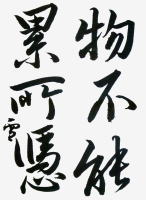 物不能
累所憑